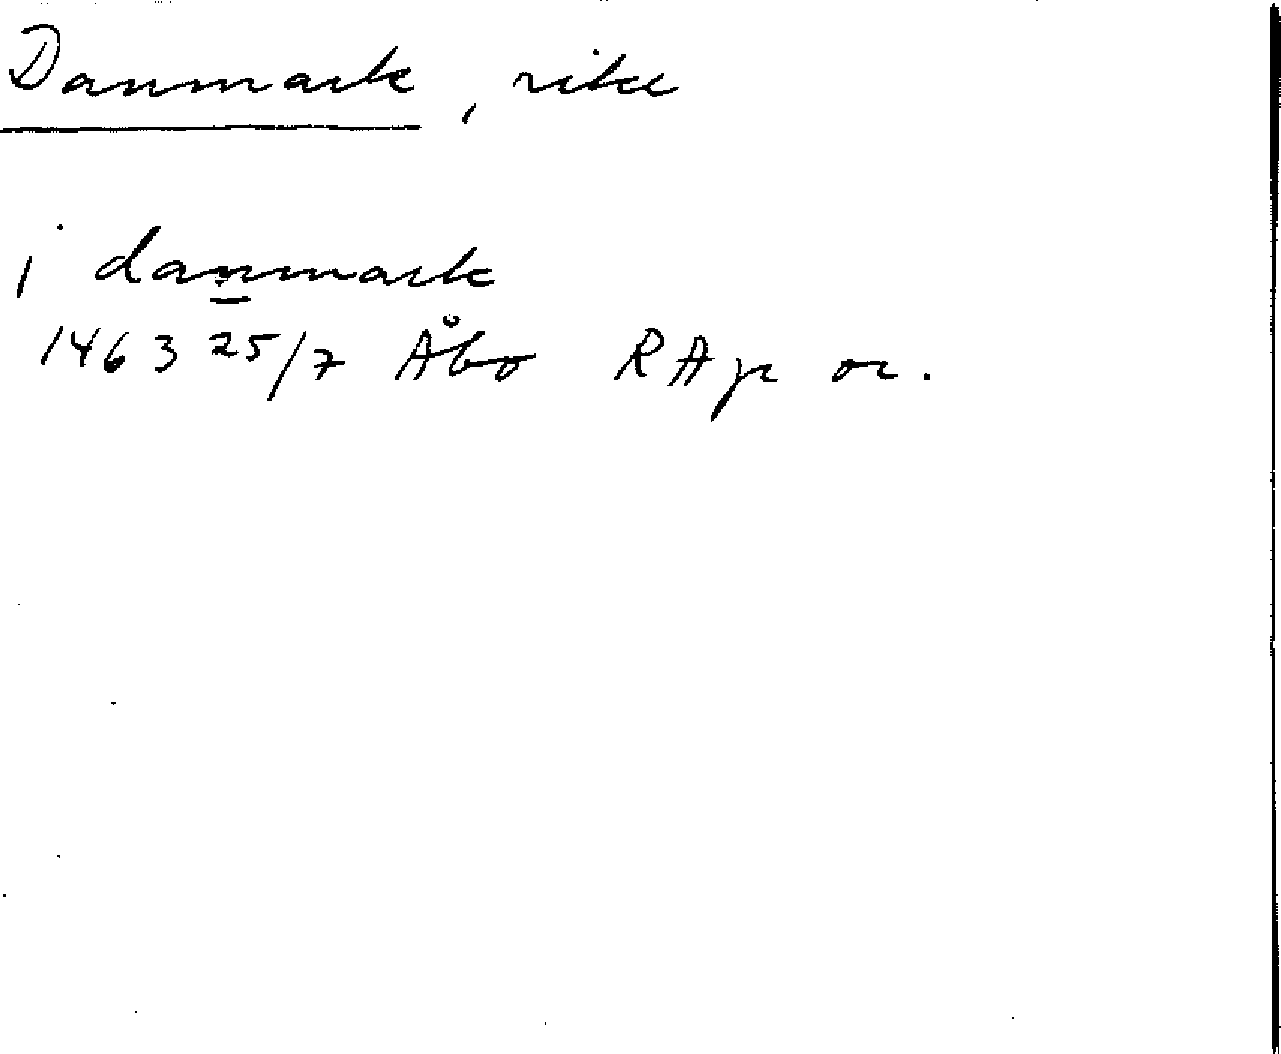 Danmark, rike
i danmark
1463 25/7 Åbo RAp or.